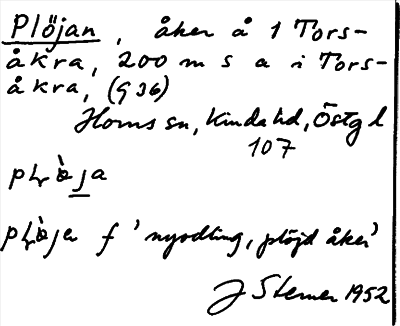 Plöjan, åker å 1 Tors-
åkra, 200 m s a i Tors-
åkra, (G 36)
Horns sn, Kinda hd, Östg l
107
f 'nyodling, plöjd åker'
J Sterner 1952